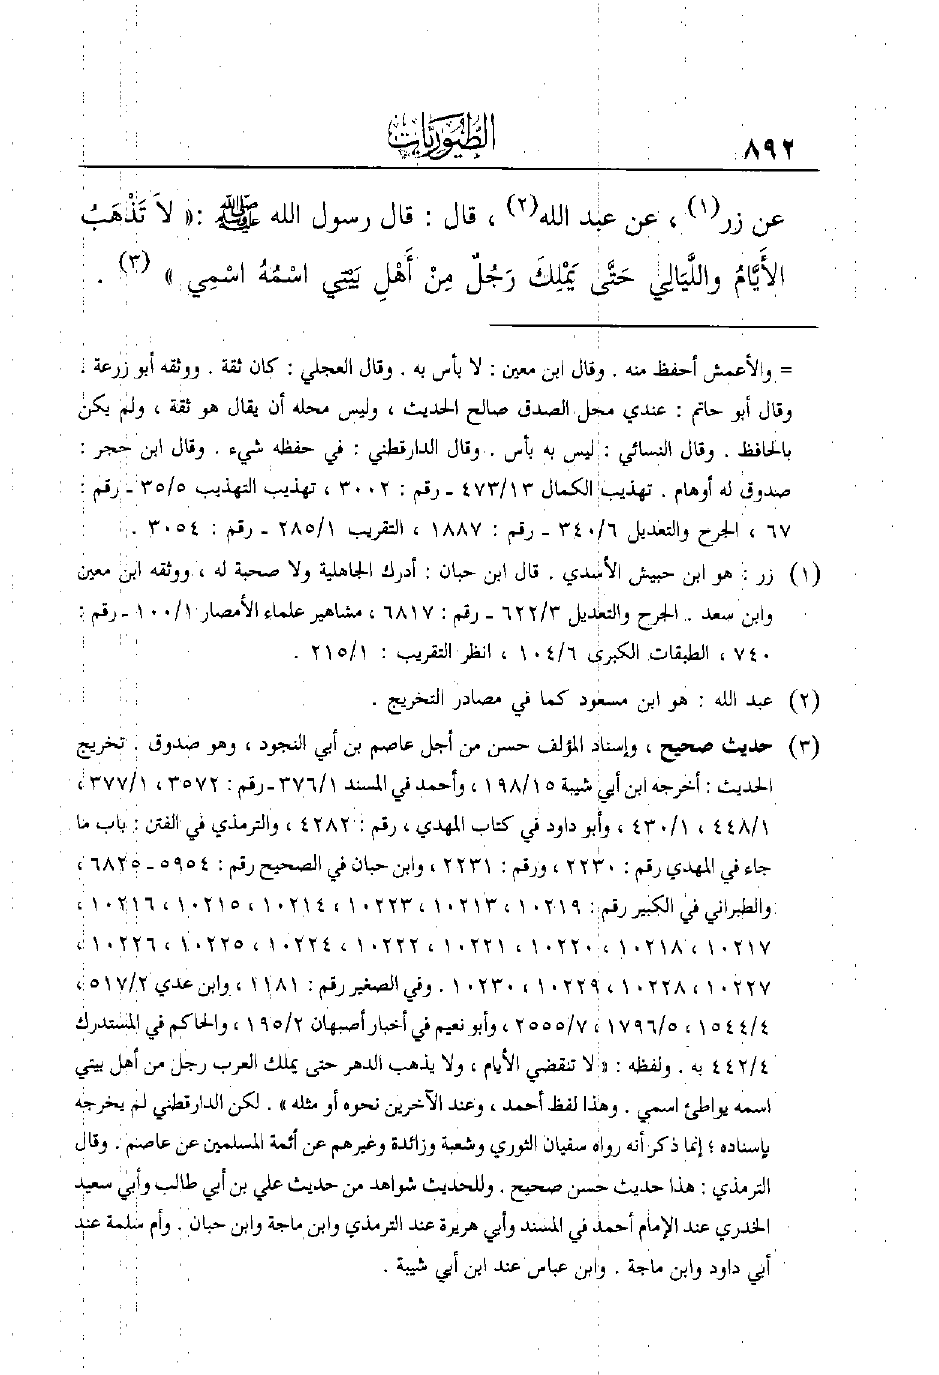 ٨٩٢
الطيوريات
عن زر(١) ، عن عبد الله(٢) ، قال : قال رسول الله ﷺ : « لاَ تَذْهَبُ
الأَيَّامُ واللَّيَالِي حَتَّى يَمْلِكَ رَجُلٌ مِنْ أَهْلِ بَيْتِي اسْمُهُ اسْمِي » (٣) .
= والأعمش أحفظ منه . وقال ابن معين : لا بأس به . وقال العجلي : كان ثقة . ووثقه أبو زرعة .
وقال أبو حاتم : عندي محل الصدق صالح الحديث ، وليس محله أن يقال هو ثقة ، ولم يكن
بالحافظ . وقال النسائي : ليس به بأس . وقال الدارقطني : في حفظه شيء . وقال ابن حجر :
صدوق له أوهام . تهذيب الكمال ٤٧٣/١٣ ـ رقم : ٣٠٠٢ ، تهذيب التهذيب ٣٥/٥ ـ رقم :
٦٧ ، الجرح والتعديل ٣٤٠/٦ ـ رقم : ١٨٨٧ ، التقريب ٢٨٥/١ ـ رقم : ٣٠٥٤ .
(١) زر : هو ابن حبيش الأسدي . قال ابن حبان : أدرك الجاهلية ولا صحبة له ، ووثقه ابن معين
وابن سعد . الجرح والتعديل ٦٢٢/٣ ـ رقم : ٦٨١٧ ، مشاهير علماء الأمصار ١٠٠/١ ـ رقم :
٧٤٠ ، الطبقات الكبرى ١٠٤/٦ ، انظر التقريب : ٢١٥/١ .
(٢) عبد الله : هو ابن مسعود كما في مصادر التخريج .
(٣) حديث صحيح ، وإسناد المؤلف حسن من أجل عاصم بن أبي النجود ، وهو صدوق . تخريج
الحديث : أخرجه ابن أبي شيبة ١٩٨/١٥ ، وأحمد في المسند ٣٧٦/١ ـ رقم : ٣٥٧٢ ، ٣٧٧/١ ،
٤٤٨/١ ، ٤٣٠/١ ، وأبو داود في كتاب المهدي ، رقم : ٤٢٨٢ ، والترمذي في الفتن : باب ما
جاء في المهدي رقم : ٢٢٣٠ ، ورقم : ٢٢٣١ ، وابن حبان في الصحيح رقم : ٥٩٥٤ ـ ٦٨٢٥ ،
والطبراني في الكبير رقم : ١٠٢١٩ ، ١٠٢١٣ ، ١٠٢٢٣ ، ١٠٢١٤ ، ١٠٢١٥ ، ١٠٢١٦ ،
١٠٢١٧ ، ١٠٢١٨ ، ١٠٢٢٠ ، ١٠٢٢١ ، ١٠٢٢٢ ، ١٠٢٢٤ ، ١٠٢٢٥ ، ١٠٢٢٦ ،
١٠٢٢٧ ، ١٠٢٢٨ ، ١٠٢٢٩ ، ١٠٢٣٠ . وفي الصغير رقم : ١١٨١ ، وابن عدي ٥١٧/٢ ،
١٥٤٤/٤ ، ١٧٩٦/٥ ، ٢٥٥٥/٧ ، وأبو نعيم في أخبار أصبهان ١٩٥/٢ ، والحاكم في المستدرك
٤٤٢/٤ به . ولفظه : « لا تنقضي الأيام ، ولا يذهب الدهر حتى يملك العرب رجل من أهل بيتي
اسمه يواطئ اسمي . وهذا لفظ أحمد ، وعند الآخرين نحوه أو مثله » . لكن الدارقطني لم يخرجه
بإسناده ؛ إنما ذكر أنه رواه سفيان الثوري وشعبة وزائدة وغيرهم عن أئمة المسلمين عن عاصم . وقال
الترمذي : هذا حديث حسن صحيح . وللحديث شواهد من حديث علي بن أبي طالب وأبي سعيد
الخدري عند الإمام أحمد في المسند وأبي هريرة عند الترمذي وابن ماجة وابن حبان . وأم سلمة عند
أبي داود وابن ماجة . وابن عباس عند ابن أبي شيبة .